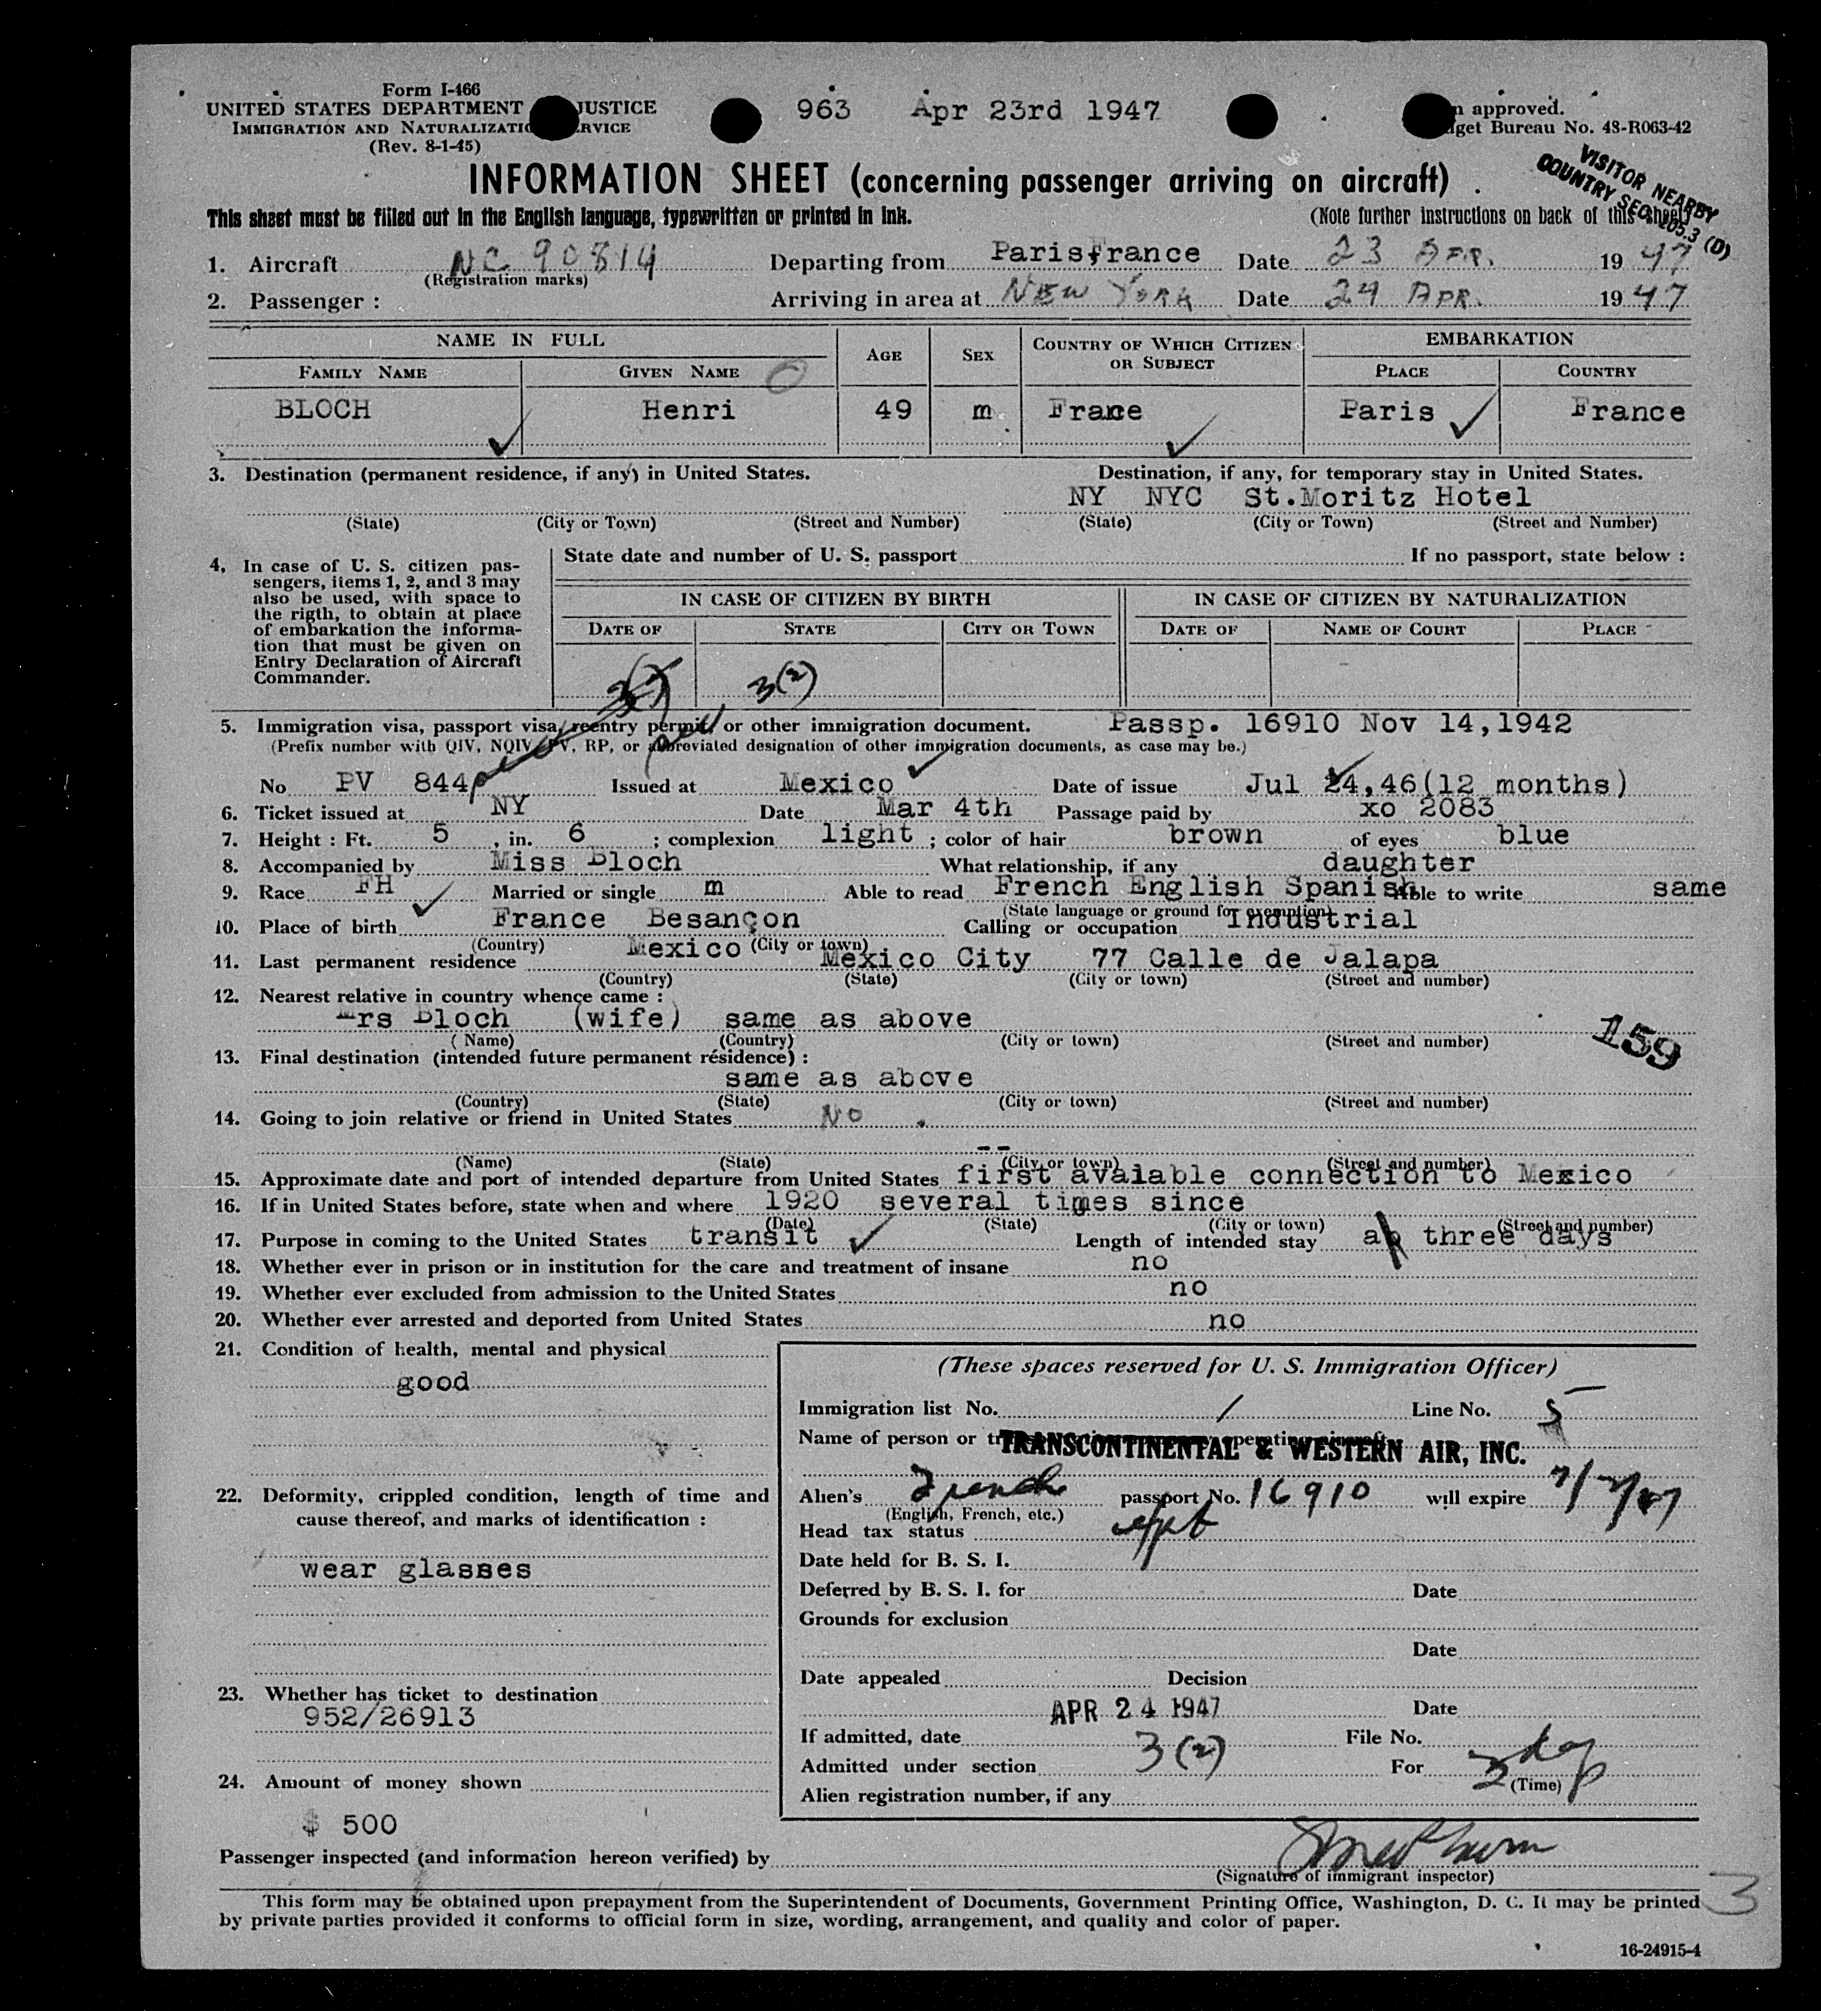 Form I-466
UNITED STATES DEPARTMENT JUSTICE
IMMIGRATION AND NATURALIZATIO RVICE
(Rev. 8-1-45)
963 Apr 23rd 1947
approved.
get Bureau No. 43-R063-42
VISITOR NEARBY
COUNTRY SEC. 205.3 (D)
INFORMATION SHEET (concerning passenger arriving on aircraft)
This sheet must be filled out in the English language, typewritten or printed in ink.
(Note further instructions on back of this sheet)
1. Aircraft NC 90814 Departing from Paris,France Date 23 APR. 1947
(Registration marks)
2. Passenger : Arriving in area at NEW YORK Date 24 APR. 1947
NAME IN FULL AGE SEX COUNTRY OF WHICH CITIZEN OR SUBJECT EMBARKATION
FAMILY NAME GIVEN NAME PLACE COUNTRY
BLOCH Henri 49 m France Paris France
3. Destination (permanent residence, if any) in United States. Destination, if any, for temporary stay in United States.
NY NYC St.Moritz Hotel
(State) (City or Town) (Street and Number) (State) (City or Town) (Street and Number)
4, In case of U. S. citizen pas-
sengers, items 1, 2, and 3 may
also be used, with space to
the rigth, to obtain at place
of embarkation the informa-
tion that must be given on
Entry Declaration of Aircraft
Commander.
State date and number of U. S. passport If no passport, state below :
IN CASE OF CITIZEN BY BIRTH IN CASE OF CITIZEN BY NATURALIZATION
DATE OF STATE CITY OR TOWN DATE OF NAME OF COURT PLACE
3(2)
5. Immigration visa, passport visa, reentry permit, or other immigration document. Passp. 16910 Nov 14,1942
(Prefix number with QIV, NQIV, PV, RP, or abbreviated designation of other immigration documents, as case may be.)
No PV 844 Issued at Mexico Date of issue Jul 24,46(12 months)
6. Ticket issued at NY Date Mar 4th Passage paid by xo 2083
7. Height : Ft. 5 , in. 6 ; complexion light ; color of hair brown of eyes blue
8. Accompanied by Miss Bloch What relationship, if any daughter
9. Race FH Married or single m Able to read French English Spanish Able to write same
(State language or ground for exemption)
10. Place of birth France Besançon Calling or occupation Industrial
(Country) (City or town)
11. Last permanent residence Mexico Mexico City 77 Calle de Jalapa
(Country) (State) (City or town) (Street and number)
12. Nearest relative in country whence came :
Mrs Bloch (wife) same as above
( Name) (Country) (City or town) (Street and number)
159
13. Final destination (intended future permanent résidence) :
same as above
(Country) (State) (City or town) (Street and number)
14. Going to join relative or friend in United States No
--
(Name) (State) (City or town) (Street and number)
15. Approximate date and port of intended departure from United States first avalable connection to Mexico
16. If in United States before, state when and where 1920 several times since
(Date) (State) (City or town) (Street and number)
17. Purpose in coming to the United States transit Length of intended stay three days
18. Whether ever in prison or in institution for the care and treatment of insane no
19. Whether ever excluded from admission to the United States no
20. Whether ever arrested and deported from United States no
21. Condition of health, mental and physical
good
22. Deformity, crippled condition, length of time and
cause thereof, and marks of identification :
wear glasses
23. Whether has ticket to destination
952/26913
24. Amount of money shown
$ 500
(These spaces reserved for U. S. Immigration Officer)
Immigration list No. 1 Line No. 5
Name of person or operating aircraft
TRANSCONTINENTAL & WESTERN AIR, INC.
Alien's French passport No. 16910 will expire
(English, French, etc.)
Head tax status
Date held for B. S. I.
Deferred by B. S. I. for Date
Grounds for exclusion
Date
Date appealed Decision
APR 24 1947 Date
If admitted, date File No.
Admitted under section 3(2) For 3 days
(Time)
Alien registration number, if any
Passenger inspected (and information hereon verified) by
(Signature of immigrant inspector)
This form may be obtained upon prepayment from the Superintendent of Documents, Government Printing Office, Washington, D. C. It may be printed
by private parties provided it conforms to official form in size, wording, arrangement, and quality and color of paper.
3
16-24915-4